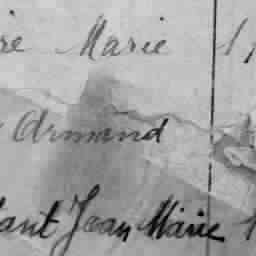 re Marie 1
Armand
ant Jean Marie 1